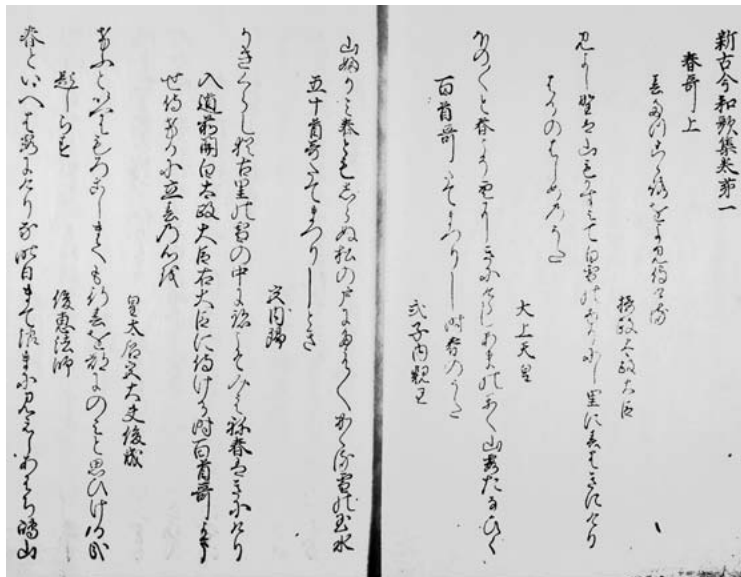 新古今和歌集巻第一
春哥上
春たつ心をよみ侍ける
摂政太政大臣
みよし野は山もかすみて白雪のふりにし里に春はきにけり
はるのはしめのうた
大上天皇
ほの〱と春こそ空にきにけらしあまのかく山霞たなひく
百首哥たてまつりし時春のうた
式子内親王
山ふかみ春ともしらぬ松の戸にたえ〱かゝる雪の玉水
五十首哥たてまつりしとき
宮内卿
かきくらし猶古里の雪の中に跡こそみえね春はきにけり
入道前関白太政大臣右大臣に侍ける時百首哥よま
せ侍けるに立春の心を
皇太后宮大夫俊成
けふといへはもろこしまても行春を都にのみと思ひける哉
題しらす
俊恵法師
春といへは霞にけりな昨日まて浪まに見えしあはち嶋山